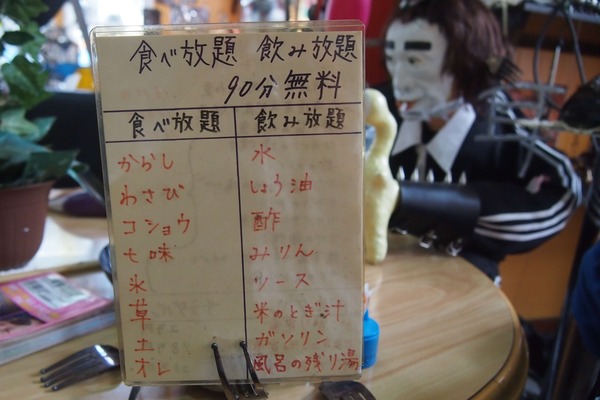 食べ放題 飲み放題
90分無料
食べ放題 飲み放題
からし 水
わさび しょう油
コショウ 酢
七味 みりん
氷 ソース
草 米のとぎ汁
土 ガソリン
オレ 風呂の残り湯